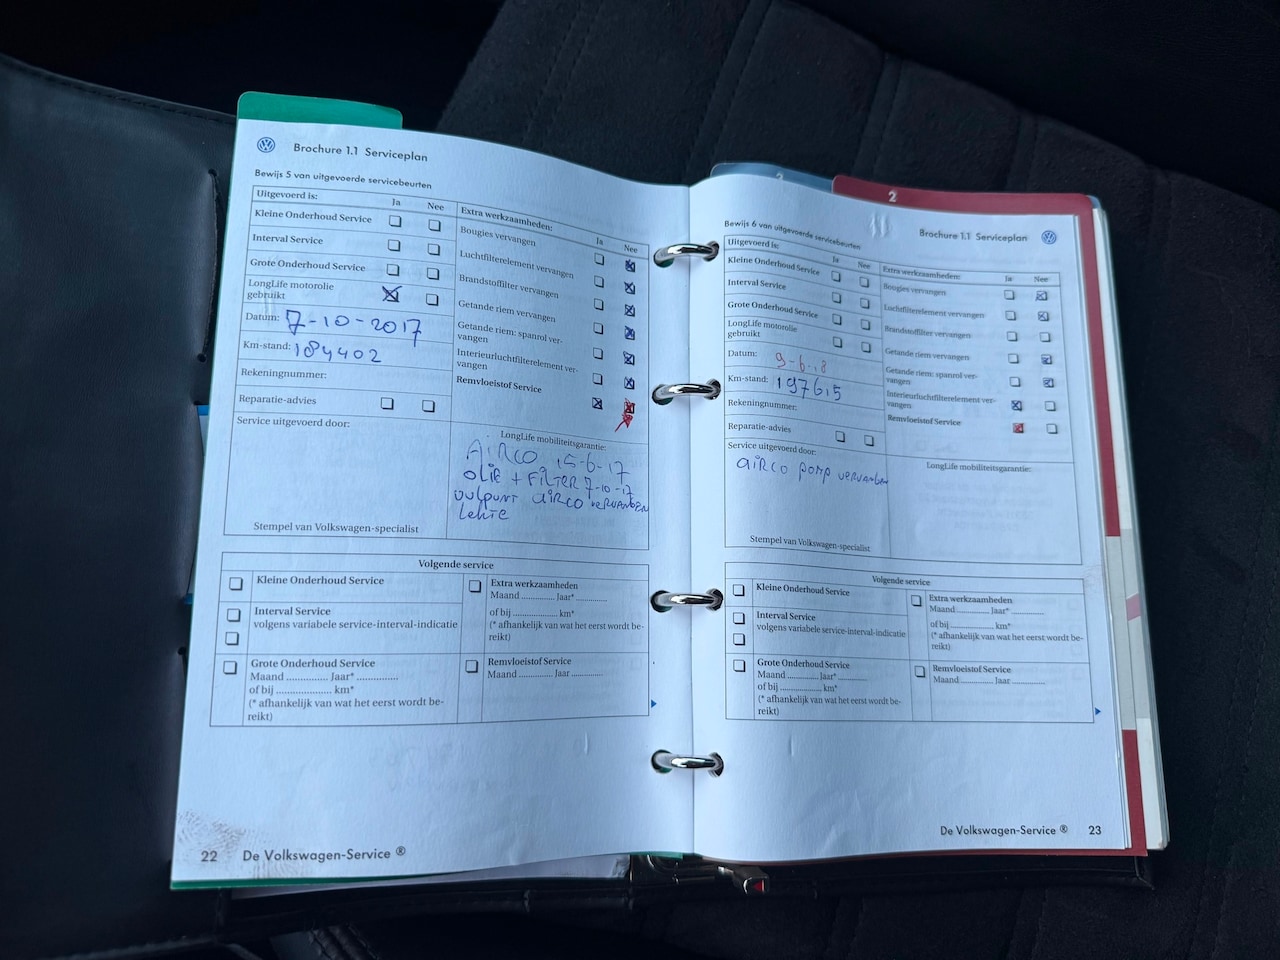 Brochure 1.1 Serviceplan
Bewijs 5 van uitgevoerde servicebeurten
Uitgevoerd is:
Ja Nee
Kleine Onderhoud Service
Interval Service
Grote Onderhoud Service
LongLife motorolie
gebruikt
Datum: 7-10-2017
Km-stand: 184402
Rekeningnummer:
Reparatie-advies
Extra werkzaamheden:
Ja Nee
Bougies vervangen
Luchtfilterelement vervangen
Brandstoffilter vervangen
Getande riem vervangen
Getande riem: spanrol ver-
vangen
Interieurluchtfilterelement ver-
vangen
Remvloeistof Service
Service uitgevoerd door:
Stempel van Volkswagen-specialist
LongLife mobiliteitsgarantie:
AIRCO 15-6-17
OLIE + FILTER 7-10-17
VULPUNT AIRCO VERVANGEN
Lekte
Volgende service
Kleine Onderhoud Service
Interval Service
volgens variabele service-interval-indicatie
Grote Onderhoud Service
Maand ............ Jaar* ............
of bij ................ km*
(* afhankelijk van wat het eerst wordt be-
reikt)
Extra werkzaamheden
Maand ............ Jaar* ............
of bij ................ km*
(* afhankelijk van wat het eerst wordt be-
reikt)
Remvloeistof Service
Maand ............ Jaar ............
22 De Volkswagen-Service ®
2
2
Brochure 1.1 Serviceplan
Bewijs 6 van uitgevoerde servicebeurten
Uitgevoerd is:
Ja Nee
Kleine Onderhoud Service
Interval Service
Grote Onderhoud Service
LongLife motorolie
gebruikt
Datum: 9-6-18
Km-stand: 197615
Rekeningnummer:
Reparatie-advies
Extra werkzaamheden:
Ja Nee
Bougies vervangen
Luchtfilterelement vervangen
Brandstoffilter vervangen
Getande riem vervangen
Getande riem: spanrol ver-
vangen
Interieurluchtfilterelement ver-
vangen
Remvloeistof Service
Service uitgevoerd door:
AIRCO POMP VERVANGEN
Stempel van Volkswagen-specialist
LongLife mobiliteitsgarantie:
Volgende service
Kleine Onderhoud Service
Interval Service
volgens variabele service-interval-indicatie
Grote Onderhoud Service
Maand ............ Jaar* ............
of bij ................ km*
(* afhankelijk van wat het eerst wordt be-
reikt)
Extra werkzaamheden
Maand ............ Jaar* ............
of bij ................ km*
(* afhankelijk van wat het eerst wordt be-
reikt)
Remvloeistof Service
Maand ............ Jaar ............
De Volkswagen-Service ® 23